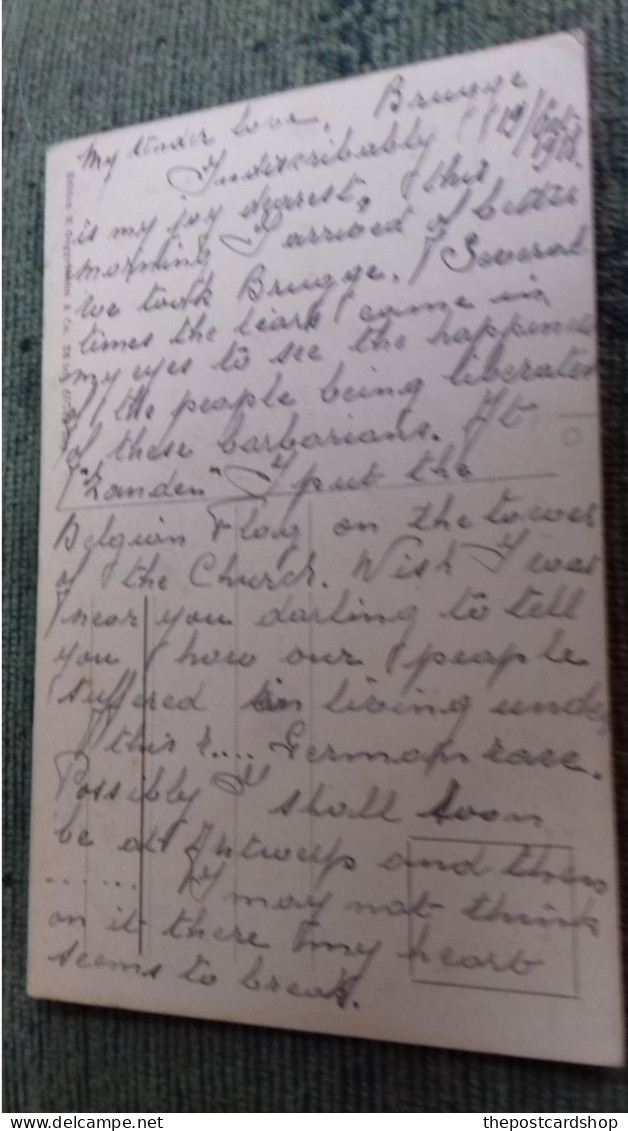 Brugge
My tender love, 19/Oct.
Indiscribably 1918.
is my joy dearest, this
morning I arrived of better
we took Brugge. Several
times the tears came in
my eyes to see the happiness
of the people being liberated
of these barbarians. At
"Zanden" I put the
Belgian Flag on the tower
of the Church. Wish I was
near you darling to tell
you how our people
suffered in living under
this r.... German race.
Possibly I shall soon
be at Antwerp and then
...... I may not think
on it there my heart
seems to break.
thepostcardshop